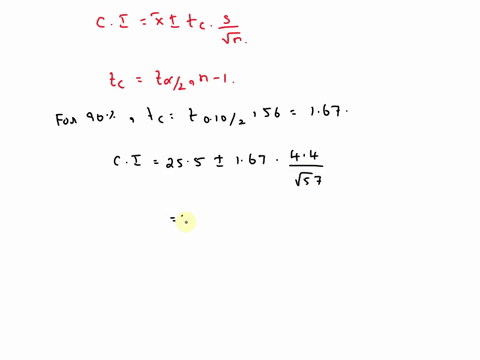 C.I = x̄ ± tc · s/√n.
tc = tα/2, n-1.
For 90%, tc = t0.10/2, 56 = 1.67.
C.I = 25.5 ± 1.67 · 4.4/√57
=